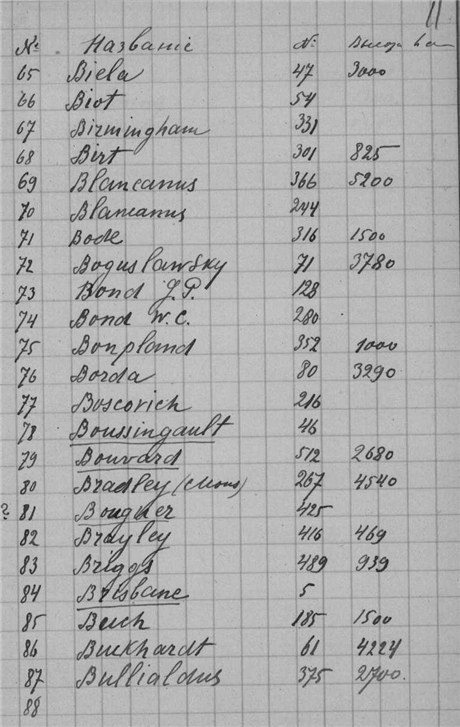 11
№ Название № Высота в м
65 Biela 47 3000
66 Biot 54
67 Birmingham 331
68 Birt 301 825
69 Blancanus 366 5200
70 Blancanus 244
71 Bode 316 1500
72 Boguslawsky 71 3780
73 Bond G.P. 128
74 Bond W.C. 280
75 Bonpland 352 1000
76 Borda 80 3290
77 Boscovich 216
78 Boussingault 46
79 Bouvard 512 2680
80 Bradley (Mons) 267 4540
? 81 Bouguer 425
82 Brayley 416 469
83 Briggs 489 939
84 Brisbane 5
85 Buch 185 1500
86 Buckhardt 61 4224
87 Bullialdus 375 2700.
88